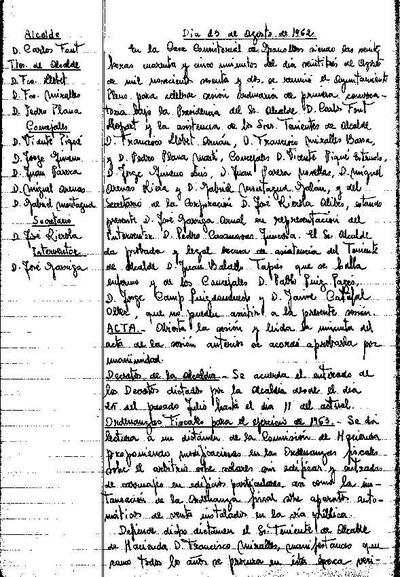 Alcalde
D. Carlos Font
Ttes. de Alcalde
D. Fco. Llobet
D. Fco. Miralles
D. Pedro Plana
Concejales
D. Vicente Piqué
D. Jorge Gimeno
D. Juan Parera
D. Miguel Arenas
D. Gabriel Montagud
Secretario
D. José Rierola
Interventor
D. José Garriga
Dia 23 de Agosto de 1962
En la Casa Consistorial de Granollers siendo las veinte
horas cuarenta y cinco minutos del dia veintitres de Agosto
de mil novecientos sesenta y dos, se reunió el Ayuntamiento
Pleno para celebrar sesión ordinaria de primera convoca-
toria bajo la Presidencia del Sr. Alcalde D. Carlos Font
Llopart y la asistencia de los Sres. Tenientes de Alcalde
D. Francisco Llobet D. Francisco Miralles
y D. Pedro Plana Concejales D. Vicente Piqué
D. Jorge Gimeno D. Juan Parera D. Miguel
Arenas Riera y D. Gabriel Montagud Galán, y del
Secretario de la Corporación D. José Rierola estando
presente D. José Garriga en representación del
Interventor D. Pedro Casanovas El Sr. Alcalde
da probada y legal excusa de asistencia del Teniente
de Alcalde D. Juan que se halla
enfermo y de los Concejales D. Pablo Luiz
D. Jorge Camp y D. Jaime
que no pueden asistir a la presente sesión.
ACTA.- Abierta la sesión y leida la minuta del
acta de la sesión anterior se acordó aprobarla por
unanimidad.
Decretos de la Alcaldia.- Se acuerda el enterado de
los Decretos dictados por la Alcaldia desde el dia
del pasado Julio hasta el dia 11 del actual.
Ordenanzas Fiscales para el ejercicio de 1963.- Se da
lectura a un dictamen de la Comisión de Hacienda
proponiendo modificaciones en las Ordenanzas fiscales
sobre el arbitrio sobre solares sin edificar y entradas
de carruajes en edificios particulares, asi como la ins-
tauración de la Ordenanza fiscal sobre aparatos auto-
máticos de venta instalados en la via pública.
Defiende dicho dictamen el Sr. Teniente de Alcalde
de Hacienda D. Francisco Miralles, manifestando que
como todos los años se procura en esta época